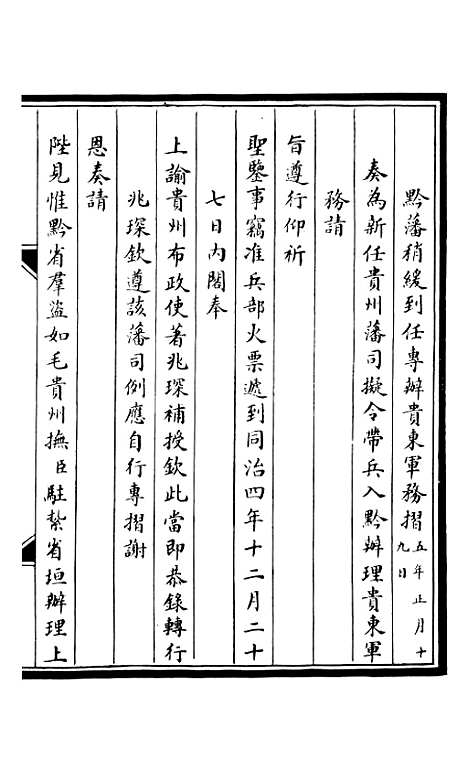 黔藩稍緩到任專辦貴東軍務摺五年正月十九日
奏為新任貴州藩司擬令帶兵入黔辦理貴東軍
務請
旨遵行仰祈
聖鑒事竊准兵部火票遞到同治四年十二月二十
七日內閣奉
上諭貴州布政使著兆琛補授欽此當即恭錄轉行
兆琛欽遵該藩司例應自行專摺謝
恩奏請
陛見惟黔省羣盜如毛貴州撫臣駐紮省垣辦理上